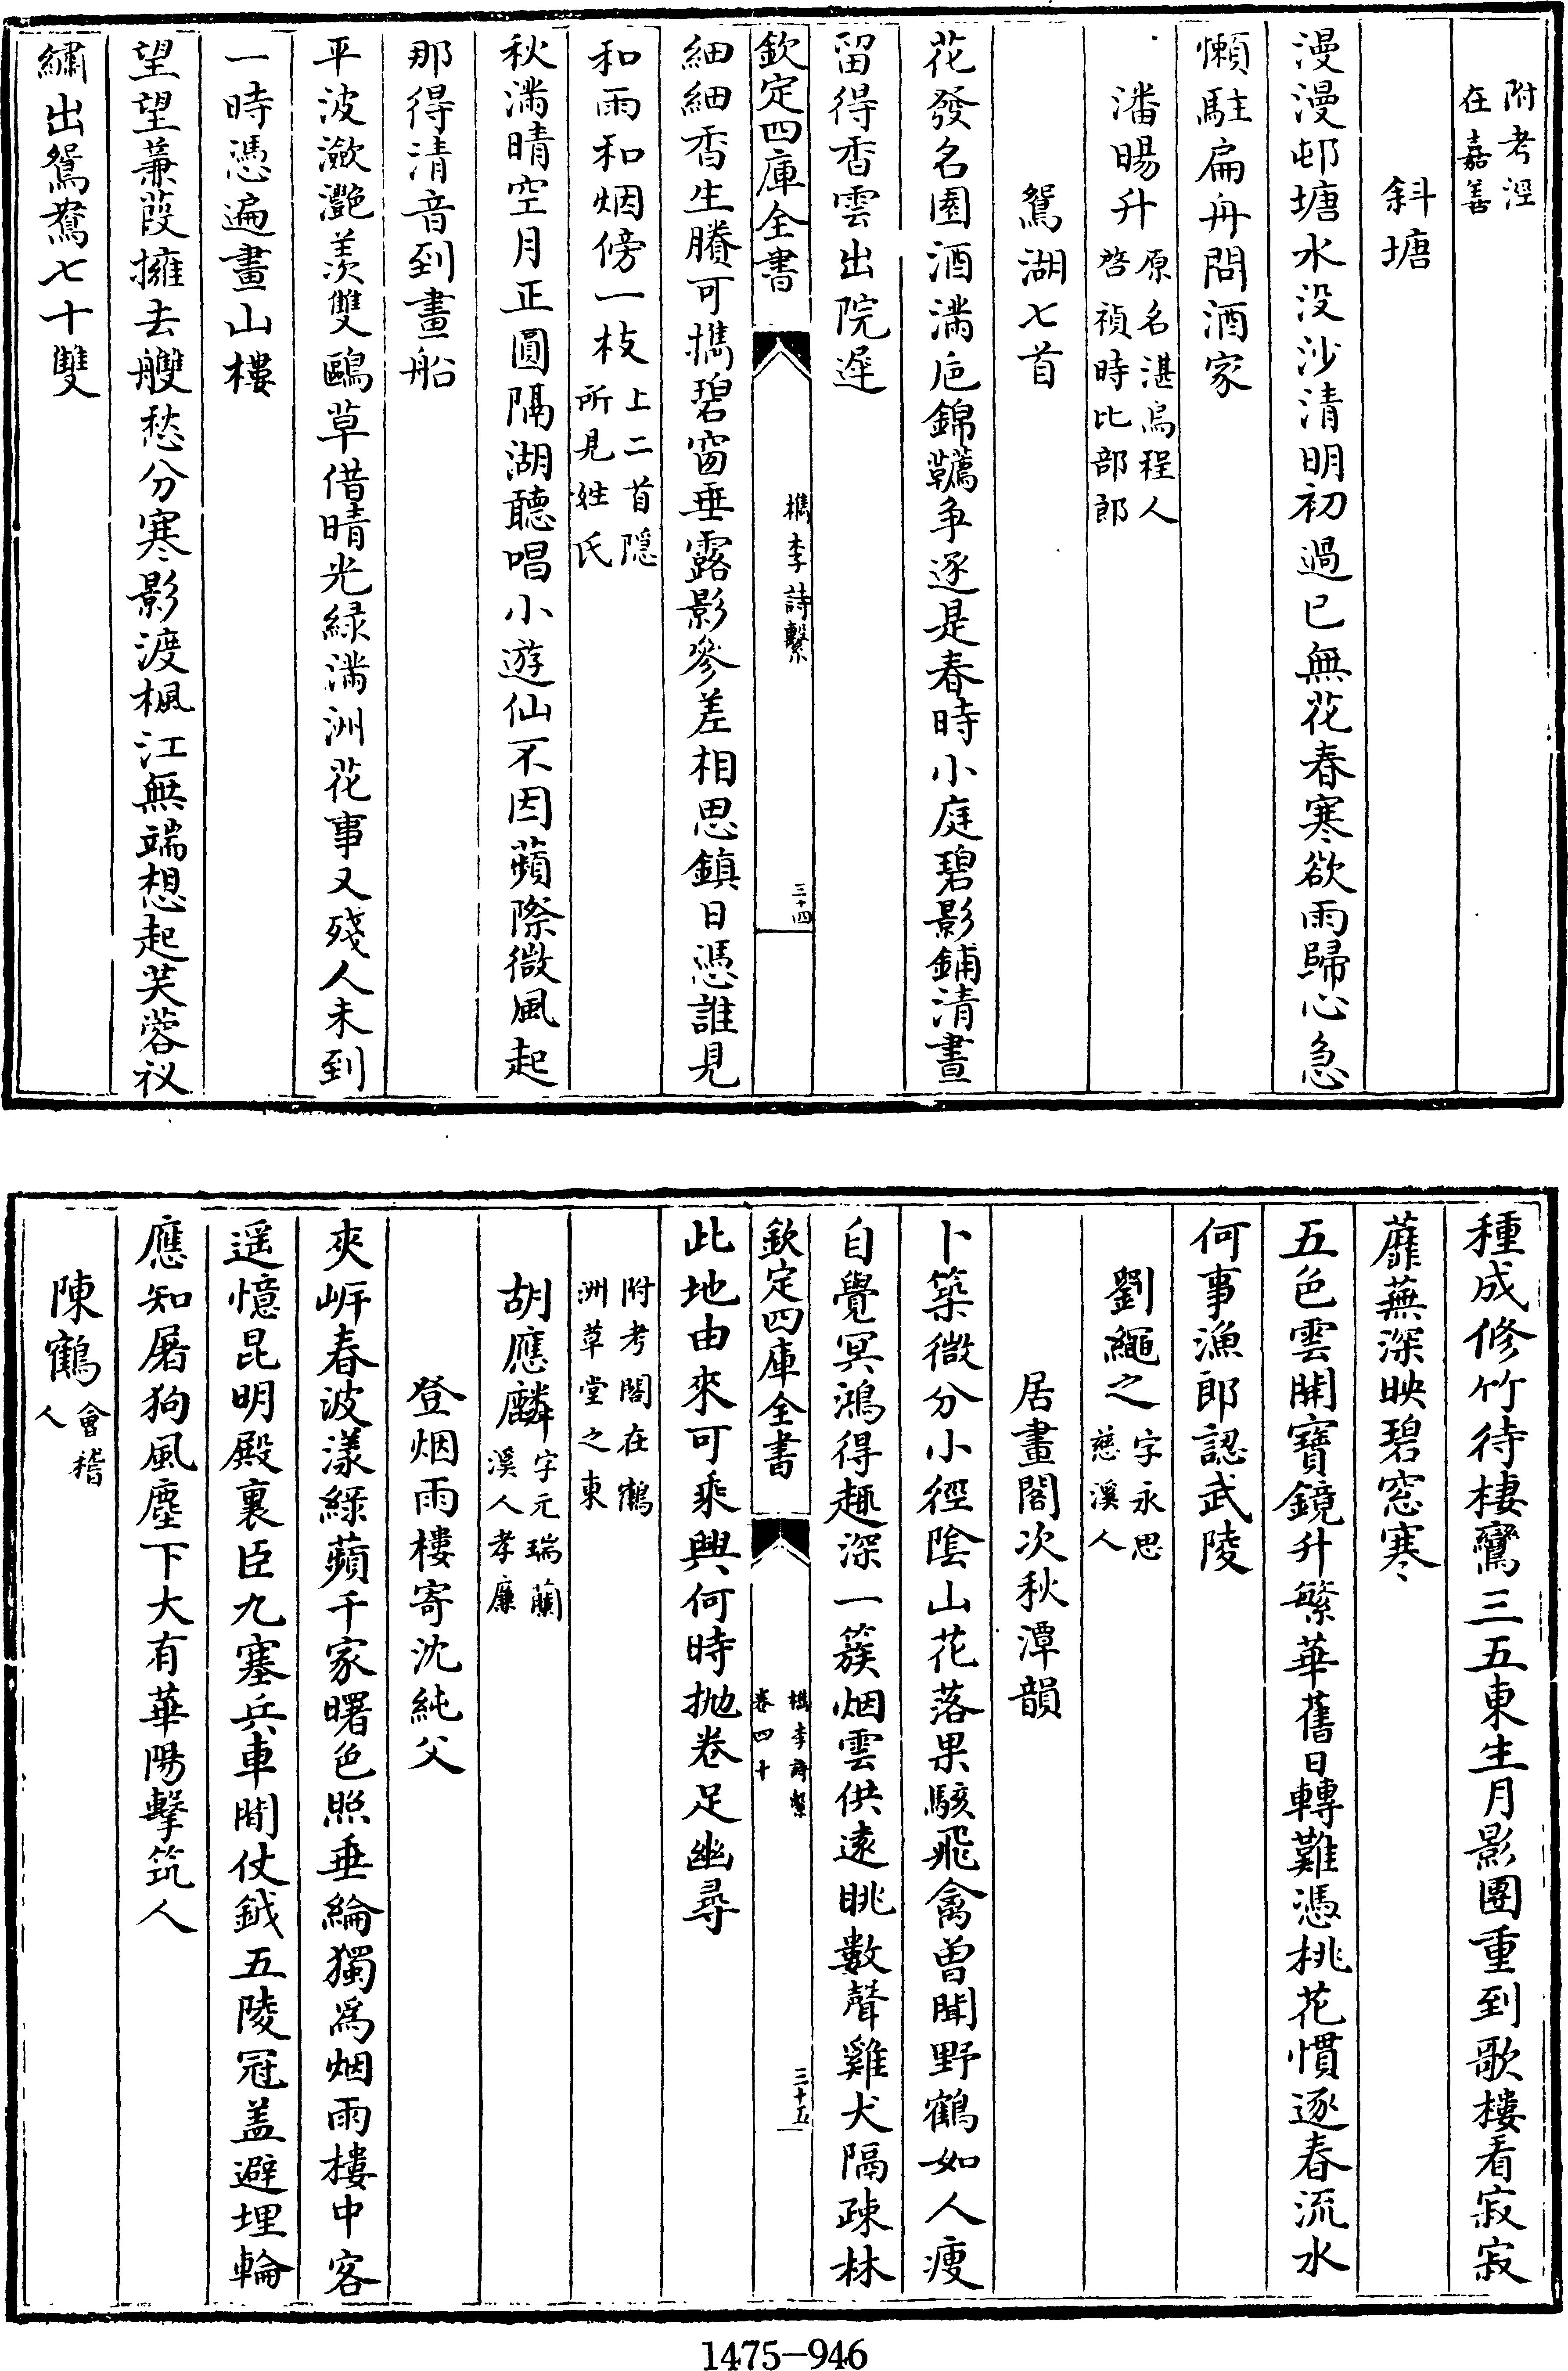 附考涇
在嘉善
斜塘
漫漫邨塘水没沙清明初過已無花春寒欲雨歸心急
懶駐扁舟問酒家
潘暘升
原名湛烏程人
啓禎時比部郎
鴛湖七首
花發名園酒滿巵錦韉争逐是春時小庭碧影鋪清晝
留得香雲出院遲
欽定四庫全書
檇李詩繫
三十四
細細香生賸可擕碧窗垂露影參差相思鎮日憑誰見
和雨和烟傍一枝
上二首隱
所見姓氏
秋滿晴空月正圓隔湖聽唱小遊仙不因蘋際微風起
那得清音到畫船
平波瀲灧羡雙鷗草借晴光緑滿洲花事又殘人未到
一時憑遍畫山樓
望望蒹葭擁去艭愁分寒影渡楓江無端想起芙蓉衩
繡出鴛鴦七十雙
種成修竹待棲鸞三五東生月影團重到歌樓看寂寂
蘼蕪深映碧窓寒
五色雲開寶鏡升繁華舊日轉難憑桃花慣逐春流水
何事漁郎認武陵
劉繩之
字永思
慈溪人
居畫閣次秋潭韻
卜築微分小徑隂山花落果駭飛禽曽聞野鶴如人瘦
自覺冥鴻得趣深一簇烟雲供遠眺數聲雞犬隔疎林
欽定四庫全書
檇李詩繫
卷四十
三十五
此地由來可乘興何時抛卷足幽尋
附考閣在鶴
洲草堂之東
胡應麟
字元瑞蘭
溪人孝廉
登烟雨樓寄沈純父
夾岍春波漾綠蘋千家曙色照垂綸獨爲烟雨樓中客
遥憶昆明殿裏臣九塞兵車閒仗鉞五陵冠盖避埋輪
應知屠狗風塵下大有華陽擊筑人
陳鶴
會稽
人
1475-946